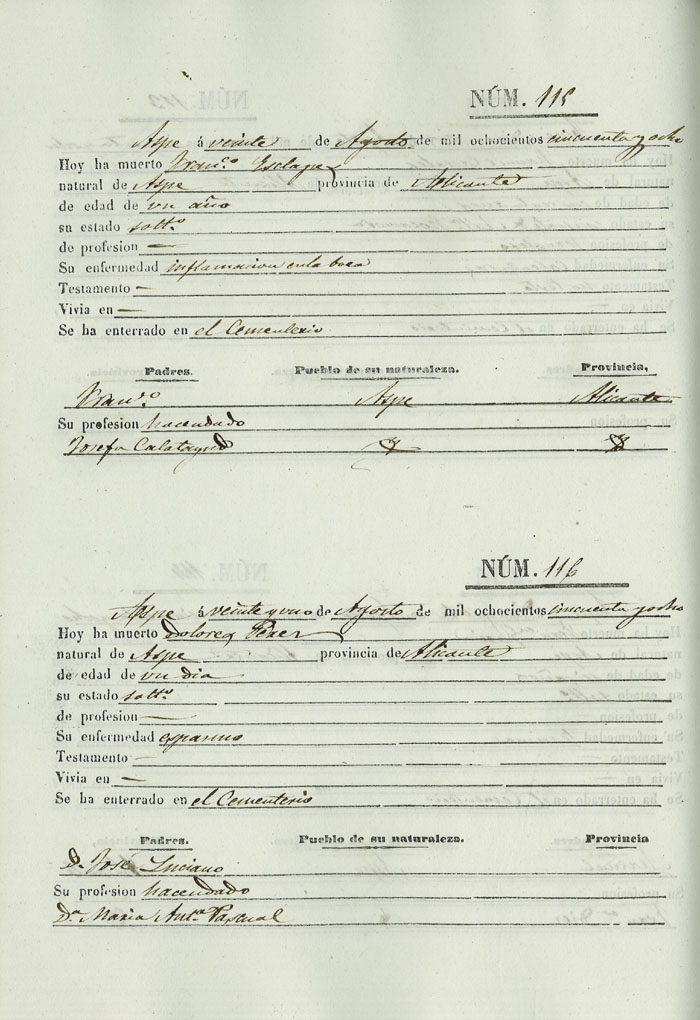 NÚM. 115
Aspe á veinte de Agosto de mil ochocientos cincuenta y ocho
Hoy ha muerto Fran.co Esclapez
natural de Aspe provincia de Alicante
de edad de un año
su estado solt.o
de profesion —
Su enfermedad inflamacion en la boca
Testamento —
Vivia en —
Se ha enterrado en el Cementerio
Padres. Pueblo de su naturaleza. Provincia,
Fran.co Aspe Alicante
Su profesion hacendado
Josefa Calatayud
NÚM. 116
Aspe á veinte y uno de Agosto de mil ochocientos cincuenta y ocho
Hoy ha muerto Dolores Perez
natural de Aspe provincia de Alicante
de edad de un dia
su estado solt.o
de profesion —
Su enfermedad espasmo
Testamento —
Vivia en —
Se ha enterrado en el Cementerio
Padres. Pueblo de su naturaleza. Provincia
D. José Luciano
Su profesion hacendado
D.a Maria Ant.a Pascual